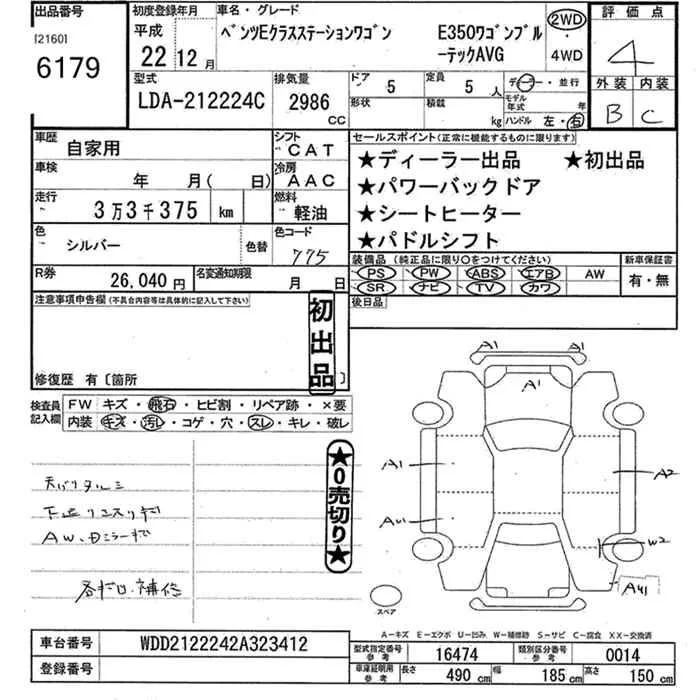 出品番号
[2160]
6179
初度登録年月
平成
22 12月
車名・グレード
ベンツEクラスステーションワゴン E350ワゴンブル
ーテックAVG
2WD
4WD
評価点
4
外装 内装
B C
型式
LDA-212224C
排気量
2986
CC
ドア 5
定員 5 人
形状
積載 kg
ディーラー・並行
モデル年式 年
ハンドル 左・右
車歴
自家用
シフト
CAT
車検
年 月( 日)
冷房
AAC
走行
3万3千375 km
燃料
軽油
色
シルバー
色替
色コード
775
R券
26,040円
名変通知期限
月 日
セールスポイント(正常に機能するものに限ります)
★ディーラー出品 ★初出品
★パワーバックドア
★シートヒーター
★パドルシフト
装備品(純正品に限り〇をつけてください)
PS PW ABS エアB AW
SR ナビ TV カワ
新車保証書
有・無
後日品
注意事項申告欄(不具合内容等は具体的に記入して下さい)
初出品
修復歴 有〔箇所 〕
検査員
記入欄
FW キズ・飛石・ヒビ割・リペア跡・×要
内装 キズ・汚レ・コゲ・穴・スレ・キレ・破レ
天バリタルミ
AW、
補修
★0売切り★
A1 A1
A1
A1
A2
W2
スペア
A-キズ E-エクボ U-凹み W-補修跡 S-サビ C-腐食 XX-交換済
車台番号
WDD2122242A323412
登録番号
型式指定番号
参考
16474
類別区分番号
参考
0014
車庫証明用
参考
長さ 490 cm
幅 185 cm
高さ 150 cm